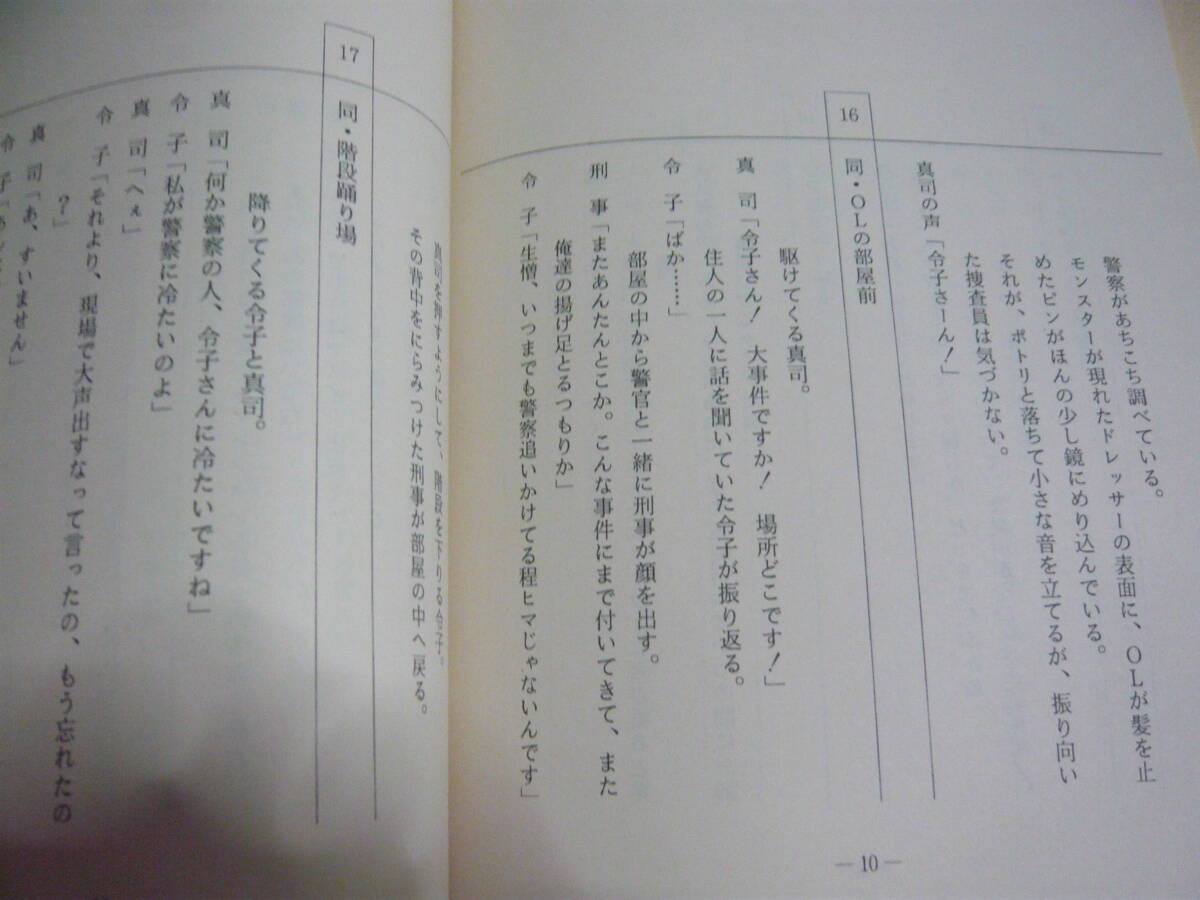 警察があちこち調べている。
モンスターが現れたドレッサーの表面に、ＯＬが髪を止
めたピンがほんの少し鏡にめり込んでいる。
それが、ポトリと落ちて小さな音を立てるが、振り向い
た捜査員は気づかない。
真司の声「令子さーん！」
16 同・ＯＬの部屋前
駆けてくる真司。
真　司「令子さん！　大事件ですか！　場所どこです！」
住人の一人に話を聞いていた令子が振り返る。
令　子「ばか……」
部屋の中から警官と一緒に刑事が顔を出す。
刑　事「またあんたんとこか。こんな事件にまで付いてきて、また
俺達の揚げ足とるつもりか」
令　子「生憎、いつまでも警察追いかけてる程ヒマじゃないんです」
―10―
真司を押すようにして、階段を下りる令子。
その背中をにらみつけた刑事が部屋の中へ戻る。
17 同・階段踊り場
降りてくる令子と真司。
真　司「何か警察の人、令子さんに冷たいですね」
令　子「私が警察に冷たいのよ」
真　司「へぇ」
令　子「それより、現場で大声出すなって言ったの、もう忘れたの
？」
真　司「あ、すいません」
令　子「